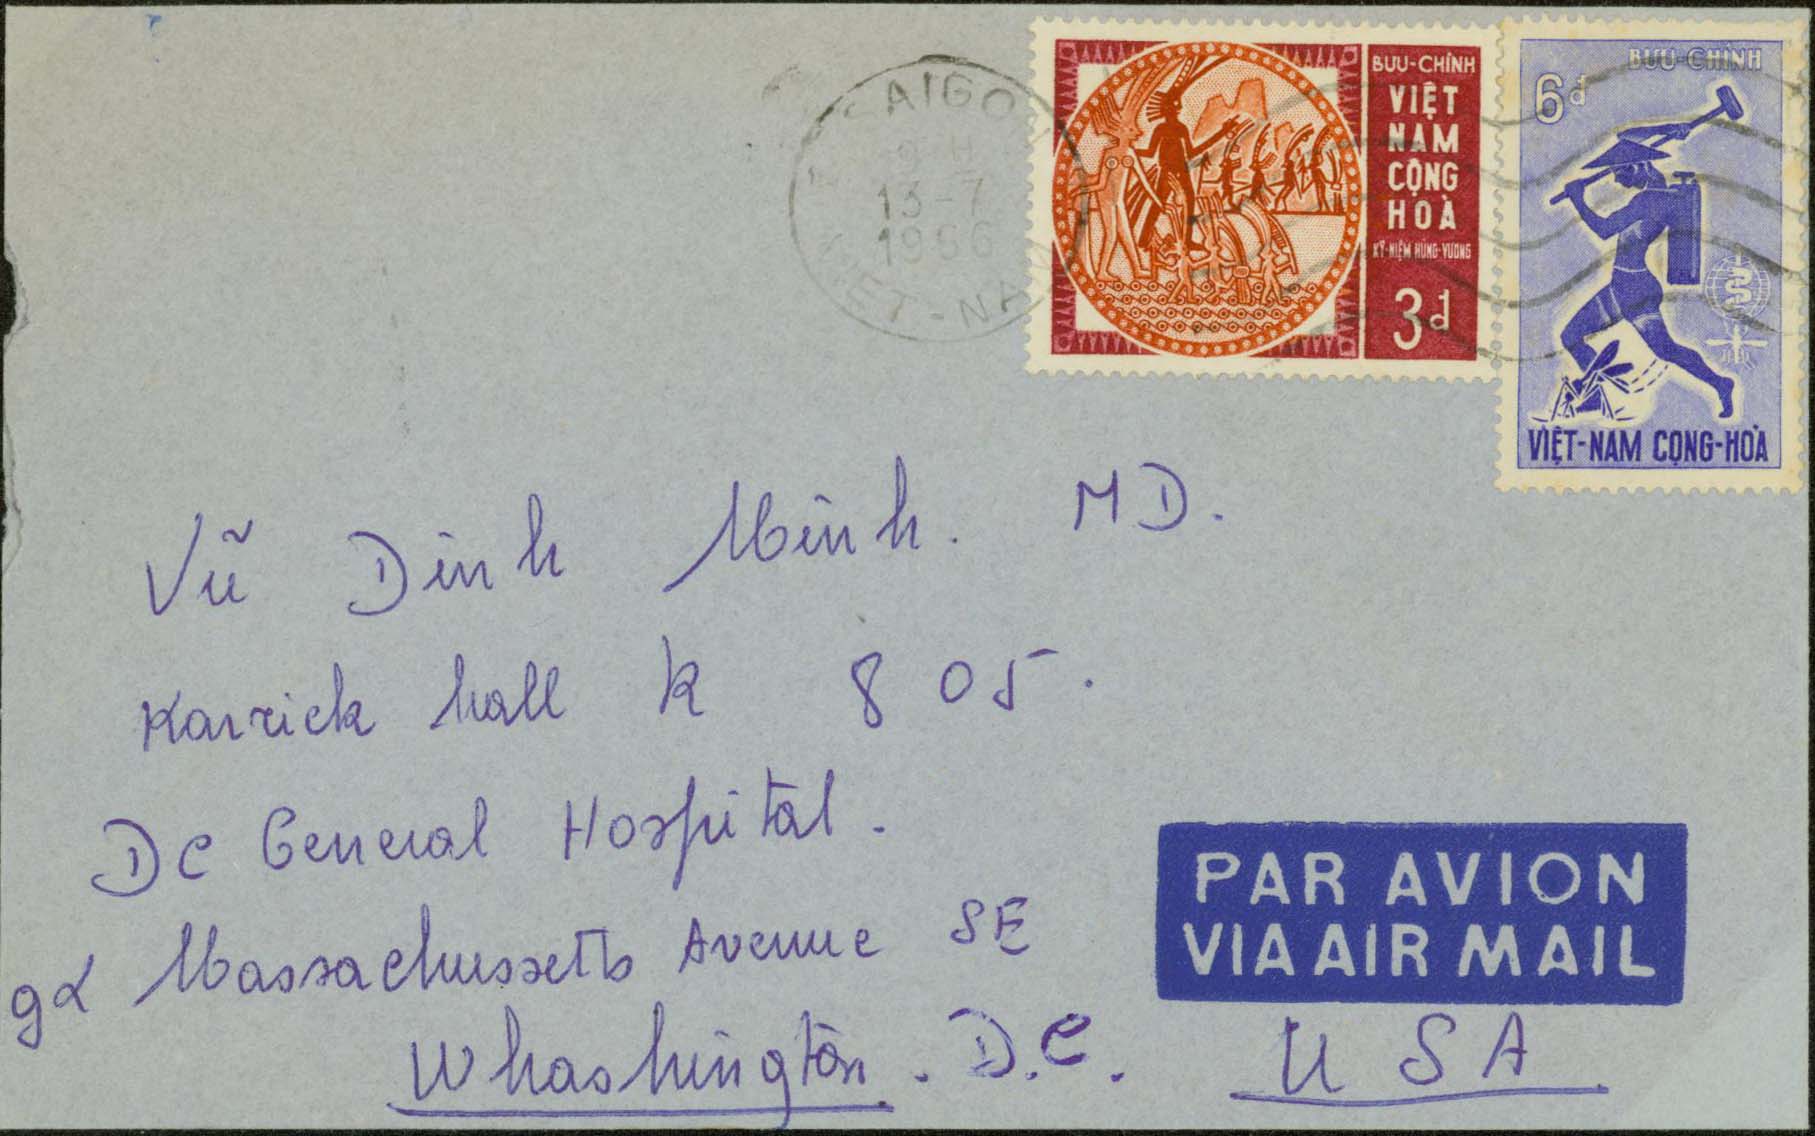 SAIGON
13-7
1966
VIET-NAM
BƯU-CHÍNH
VIỆT
NAM
CỘNG
HOÀ
KỶ-NIỆM HÙNG-VƯƠNG
3đ
BƯU-CHÍNH
6đ
VIỆT-NAM CỘNG-HOÀ
Vũ Dinh Minh. MD.
Karrick hall K 805.
DC General Hospital.
Massachussetts Avenue SE
Whashington. D.C. USA
PAR AVION
VIA AIR MAIL